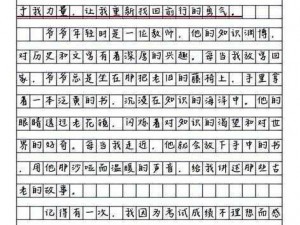 予我力量，让我重新找回前行的勇气。
爷爷年轻时是一位教师，他的知识渊博，
对历史和文学有着深厚的兴趣。每当我放学回
家，爷爷总是坐在那把老旧的藤椅上，手里拿
着一本泛黄的书，沉浸在知识的海洋中。他的
眼睛透过老花镜，闪烁着对知识的渴望和对世
界的好奇。每当我走近，他就会放下手中的书
，用他那沙哑而温暖的声音，给我讲述那些古
老的故事。
记得有一次，我因为考试成绩不理想而感